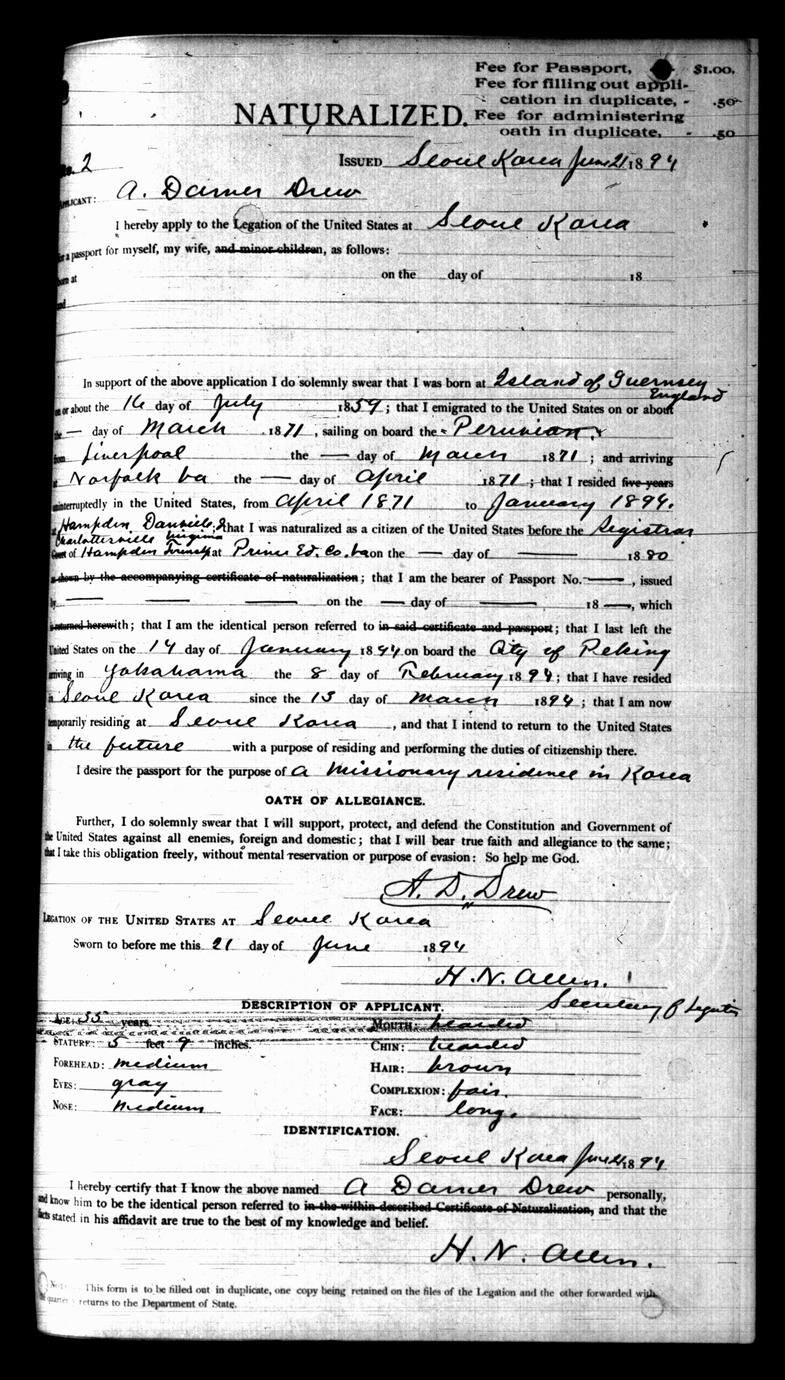 Fee for Passport, $1.00.
Fee for filling out appli-
cation in duplicate, - .50
Fee for administering
oath in duplicate, - .50
NATURALIZED.
No. 2
ISSUED Seoul Korea June 21 1894
APPLICANT: A. Damer Drew
I hereby apply to the Legation of the United States at Seoul Korea
for a passport for myself, my wife, and minor children, as follows:
born at on the day of 18
and
In support of the above application I do solemnly swear that I was born at Island of Guernsey
England
on or about the 16 day of July 1859; that I emigrated to the United States on or about
the — day of March 1871, sailing on board the "Peruvian"
from Liverpool the — day of March 1871; and arriving
at Norfolk Va the — day of April 1871; that I resided five years
uninterruptedly in the United States, from April 1871 to January 1894.
at Hampden, Danville, & that I was naturalized as a citizen of the United States before the Registrar
Charlottesville Virginia
Court of Hampden at Prince Ed. Co. Va on the — day of — 1880
as shown by the accompanying certificate of naturalization; that I am the bearer of Passport No. —, issued
by — — — on the — day of — 18 —, which
is returned herewith; that I am the identical person referred to in said certificate and passport; that I last left the
United States on the 14 day of January 1894 on board the City of Peking
arriving in Yokahama the 8 day of February 1894; that I have resided
in Seoul Korea since the 13 day of March 1894; that I am now
temporarily residing at Seoul Korea, and that I intend to return to the United States
in the future with a purpose of residing and performing the duties of citizenship there.
I desire the passport for the purpose of a missionary residence in Korea
OATH OF ALLEGIANCE.
Further, I do solemnly swear that I will support, protect, and defend the Constitution and Government of
the United States against all enemies, foreign and domestic; that I will bear true faith and allegiance to the same;
that I take this obligation freely, without mental reservation or purpose of evasion: So help me God.
A. D. Drew
LEGATION OF THE UNITED STATES AT Seoul Korea
Sworn to before me this 21 day of June 1894
H. N. Allen.
Secretary of Legation
DESCRIPTION OF APPLICANT.
AGE: 35 years. MOUTH: bearded
STATURE: 5 feet 9 inches. CHIN: bearded
FOREHEAD: medium HAIR: brown
EYES: gray COMPLEXION: fair.
NOSE: medium FACE: long.
IDENTIFICATION.
Seoul Korea June 21 1894
I hereby certify that I know the above named A Damer Drew personally,
and know him to be the identical person referred to in the within described Certificate of Naturalization, and that the
facts stated in his affidavit are true to the best of my knowledge and belief.
H. N. Allen.
This form is to be filled out in duplicate, one copy being retained on the files of the Legation and the other forwarded with
quarterly returns to the Department of State.